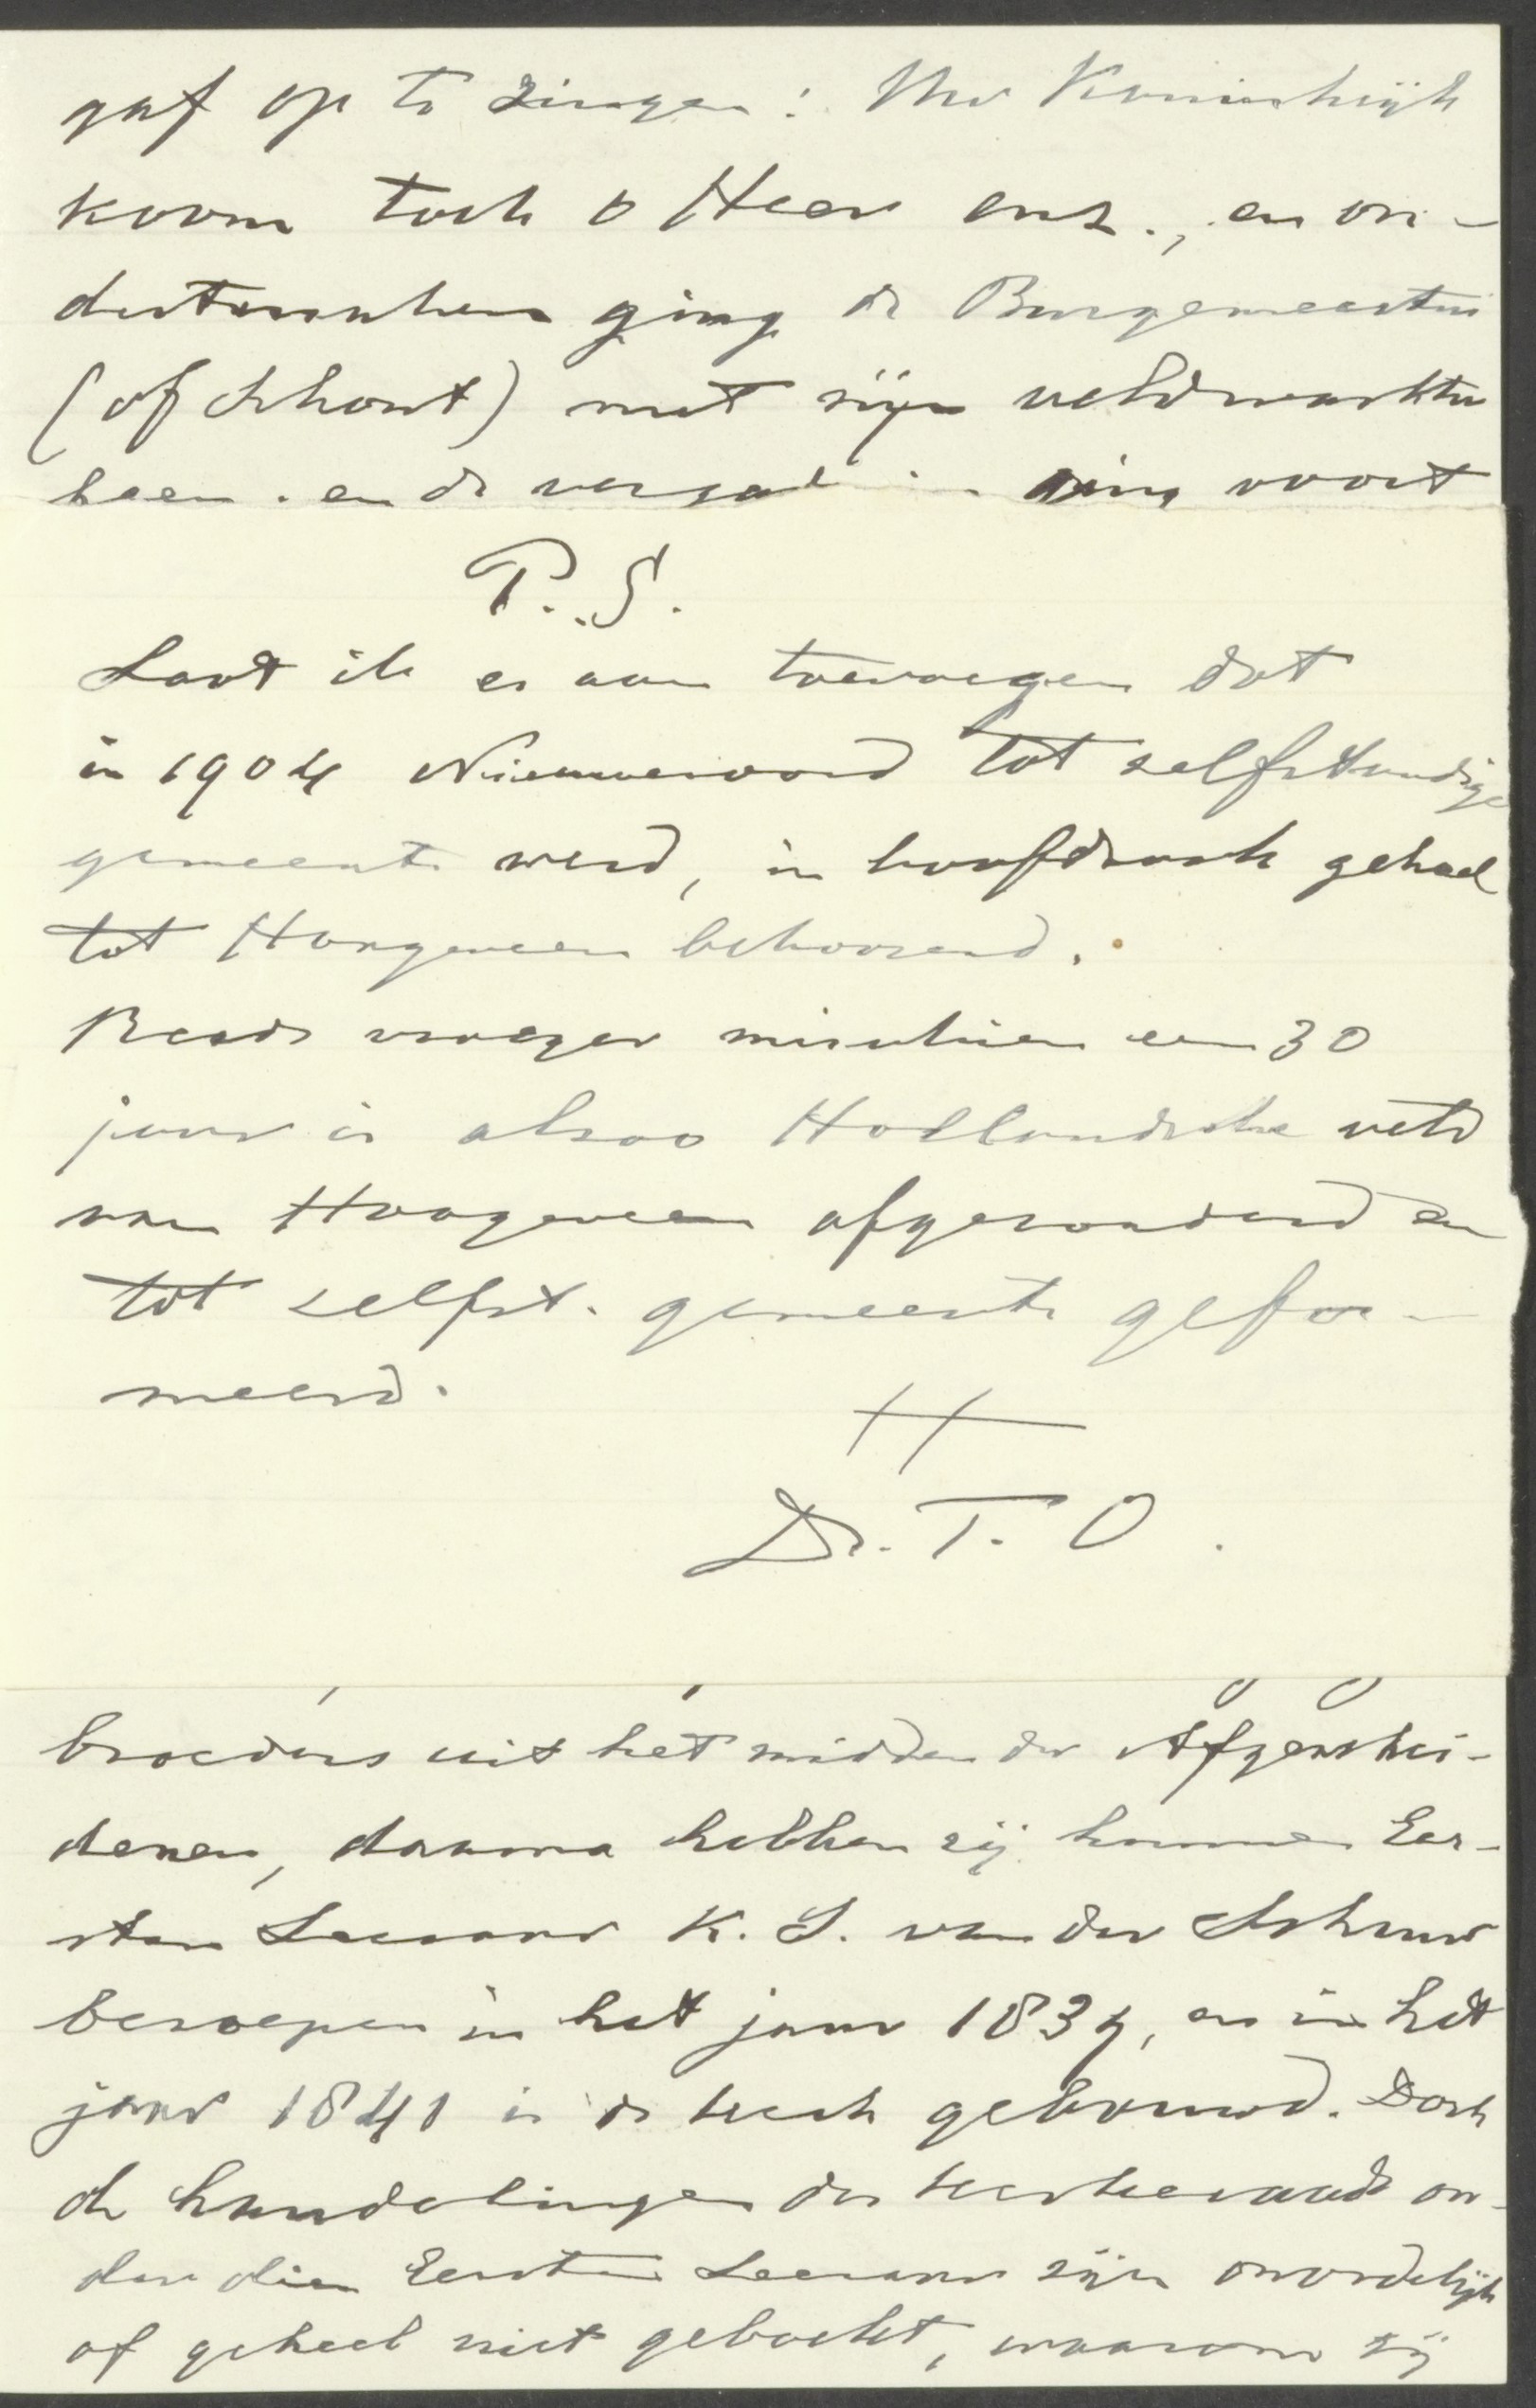 gaf op te zingen: Uw Koninkrijk
koom toch o Heer enz., en on-
dertusschen ging de Burgemeester
(of schout) met zijn veldwachter
heen. en de ging voort
P.S.
Laat ik er aan toevoegen dat
in 1904 Nieuweroord tot zelfstandige
gemeente werd, in hoofdzaak geheel
tot Hoogeveen behoorend.
Reeds vroeger misschien een 30
jaar is alzoo Hollandsche veld
van Hoogeveen afgezonderd en
tot zelfst. gemeente gefor-
meerd.
H
Dr. T. O.
broeders uit het midden der Afgeschei-
denen, daarna hebben zij hunnen Eer-
sten Leeraar K. S. van der Schuur
beroepen in het jaar 1839, en in het
jaar 1841 is de kerk gebouwd. Doch
de handelingen der kerkeraads on-
der dien Eersten Leeraar zijn onordelijk
of geheel niet geboekt, waarom zij